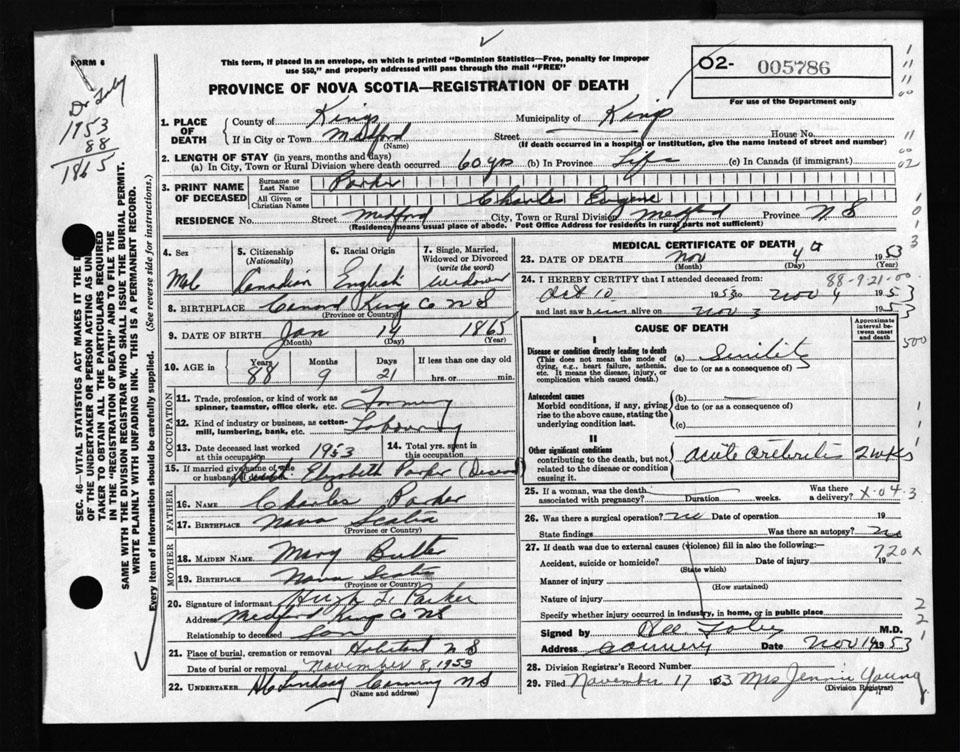 FORM 6
This form, if placed in an envelope, on which is printed "Dominion Statistics—Free, penalty for improper
use $50," and properly addressed will pass through the mail "FREE"
PROVINCE OF NOVA SCOTIA—REGISTRATION OF DEATH
02- 005786
For use of the Department only
Dr Foley
1953
88
1865
SEC. 46—VITAL STATISTICS ACT MAKES IT THE
OF THE UNDERTAKER OR PERSON ACTING AS UN
TAKER TO OBTAIN ALL THE PARTICULARS REQUIRED
IN THE "REGISTRATION OF DEATH" AND TO FILE THE
SAME WITH THE DIVISION REGISTRAR WHO SHALL ISSUE THE BURIAL PERMIT.
WRITE PLAINLY WITH UNFADING INK. THIS IS A PERMANENT RECORD.
Every item of information should be carefully supplied. (See reverse side for instructions.)
1. PLACE OF DEATH County of Kings Municipality of Kings
If in City or Town Medford (Name) Street House No.
(If death occurred in a hospital or institution, give the name instead of street and number)
2. LENGTH OF STAY (in years, months and days)
(a) In City, Town or Rural Division where death occurred 60 yrs (b) In Province Life (c) In Canada (if immigrant)
3. PRINT NAME OF DECEASED Surname or Last Name Parker
All Given or Christian Names Charles Eugene
RESIDENCE No. Street Medford City, Town or Rural Division Medford Province N S
(Residence means usual place of abode. Post Office Address for residents in rural parts not sufficient)
4. Sex Mal
5. Citizenship (Nationality) Canadian
6. Racial Origin English
7. Single, Married, Widowed or Divorced (write the word) widow
8. BIRTHPLACE Canard Kings Co N S
(Province or Country)
9. DATE OF BIRTH Jan 14 1865
(Month) (Day) (Year)
10. AGE in Years 88 Months 9 Days 21 If less than one day old hrs. or min.
OCCUPATION
11. Trade, profession, or kind of work as spinner, teamster, office clerk, etc.
12. Kind of industry or business, as cotten-mill, lumbering, bank, etc. Labouring
13. Date deceased last worked at this occupation 1953
14. Total yrs. spent in this occupation
15. If married give name of wife or husband Elizabeth Parker
FATHER
16. NAME Charles Parker
17. BIRTHPLACE Nova Scotia
(Province or Country)
MOTHER
18. MAIDEN NAME. Mary
19. BIRTHPLACE Nova Scotia
(Province or Country)
20. Signature of informant Hugh L. Parker
Address Medford Kings Co NS
Relationship to deceased Son
21. Place of burial, cremation or removal Habitant N S
Date of burial or removal November 8, 1953
22. UNDERTAKER Lindsay Canning N S
(Name and address)
MEDICAL CERTIFICATE OF DEATH
23. DATE OF DEATH Nov 4 1953
(Month) (Day) (Year)
88-9-21-00
24. I HEREBY CERTIFY that I attended deceased from:
Oct 10 1953 to Nov 4 1953
and last saw him alive on Nov 3 1953
CAUSE OF DEATH
Approximate interval between onset and death
I
Disease or condition directly leading to death
(This does not mean the mode of dying, e.g., heart failure, asthenia. It means the disease, injury, or complication which caused death.)
(a) due to (or as a consequence of)
Antecedent causes
Morbid conditions, if any, giving rise to the above cause, stating the underlying condition last.
(b) due to (or as a consequence of)
(c)
II
Other significant conditions
contributing to the death, but not related to the disease or condition causing it.
acute 2 wks
25. If a woman, was the death associated with pregnancy? Duration weeks. Was there a delivery? X-04-3
26. Was there a surgical operation? no Date of operation 19
State findings Was there an autopsy? no
27. If death was due to external causes (violence) fill in also the following:—
720 x
Accident, suicide or homicide? (State which) Date of injury 19
Manner of injury (How sustained)
Nature of injury
Specify whether injury occurred in industry, in home, or in public place
Signed by Foley M.D.
Address Date Nov 14 1953
28. Division Registrar's Record Number
29. Filed November 17 1953 Mrs Jennie Young
(Division Registrar)